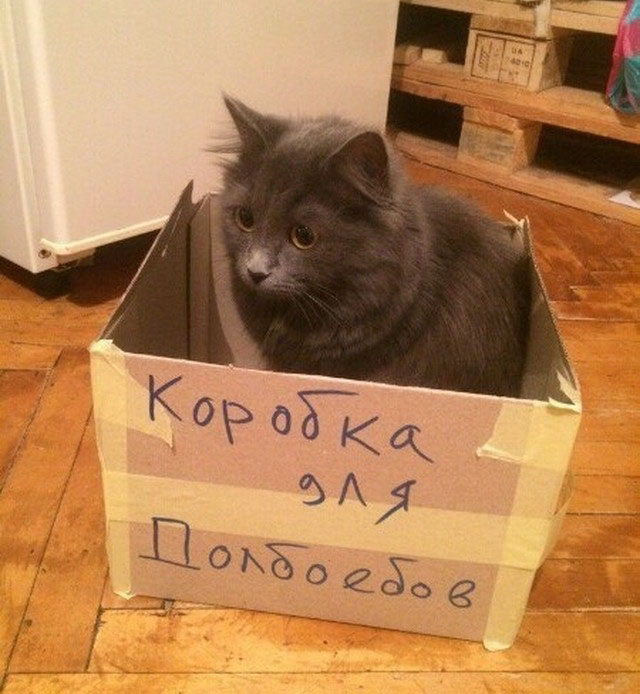 Коробка
для
Долбоебов